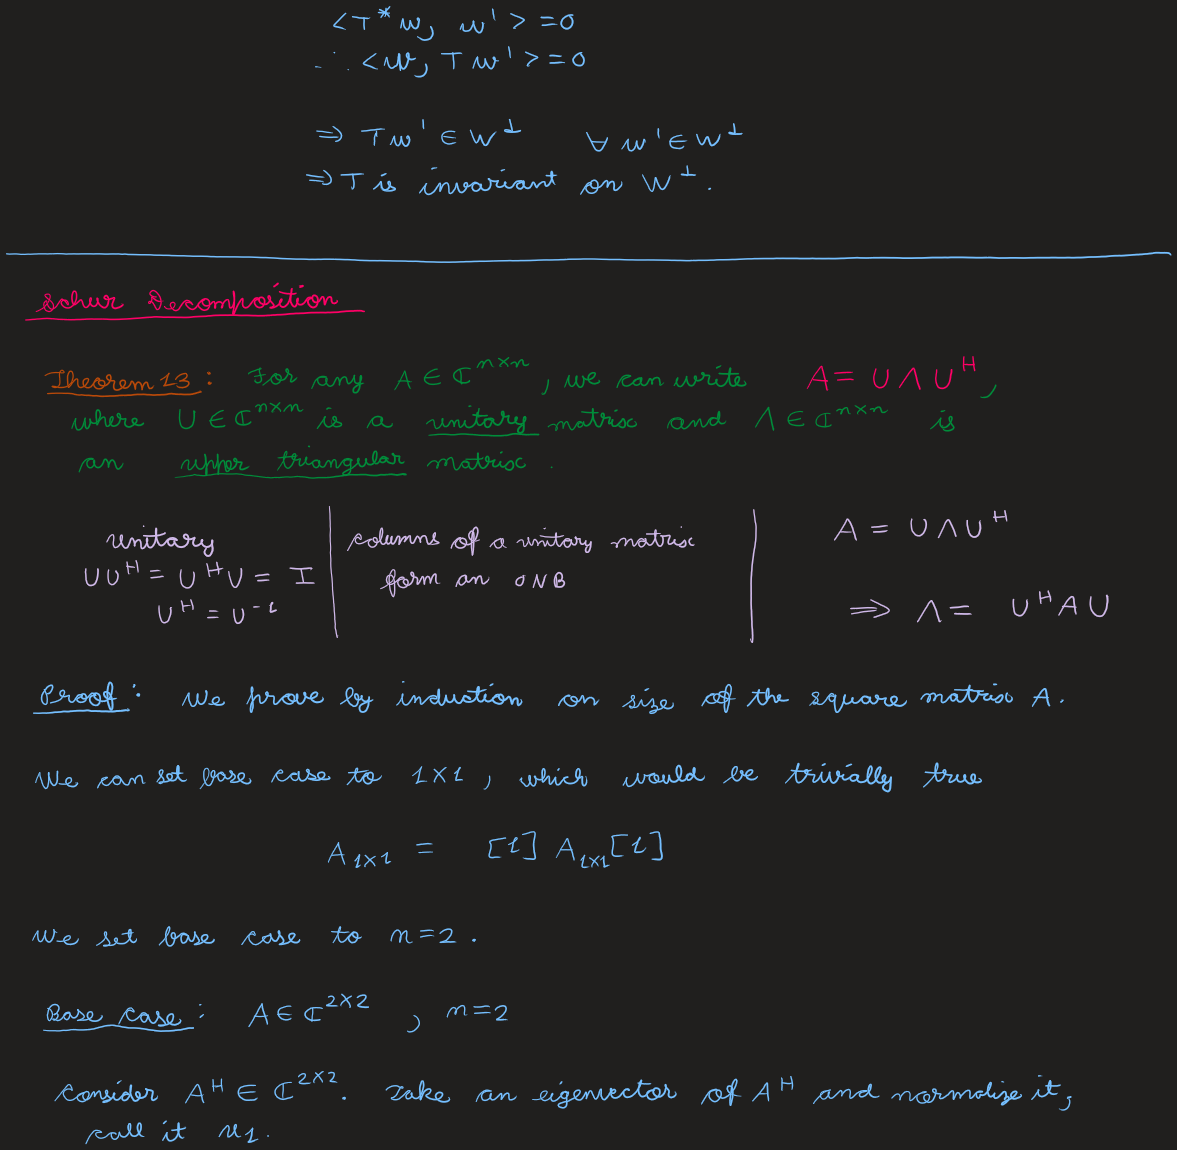 <T*w, w'> = 0
∴ <w, Tw'> = 0
⇒ Tw' ∈ W⊥ ∀ w' ∈ W⊥
⇒ T is invariant on W⊥.
Schur Decomposition
Theorem 13: For any A ∈ ℂ^{n×n}, we can write A = U Λ U^H,
where U ∈ ℂ^{n×n} is a unitary matrix and Λ ∈ ℂ^{n×n} is
an upper triangular matrix.
unitary
UU^H = U^H U = I
U^H = U^{-1}
columns of a unitary matrix
form an ONB
A = U Λ U^H
⇒ Λ = U^H A U
Proof: We prove by induction on size of the square matrix A.
We can set base case to 1×1, which would be trivially true
A_{1×1} = [1] A_{1×1} [1]
We set base case to n=2.
Base case: A ∈ ℂ^{2×2}, n=2
Consider A^H ∈ ℂ^{2×2}. Take an eigenvector of A^H and normalize it,
call it u_1.